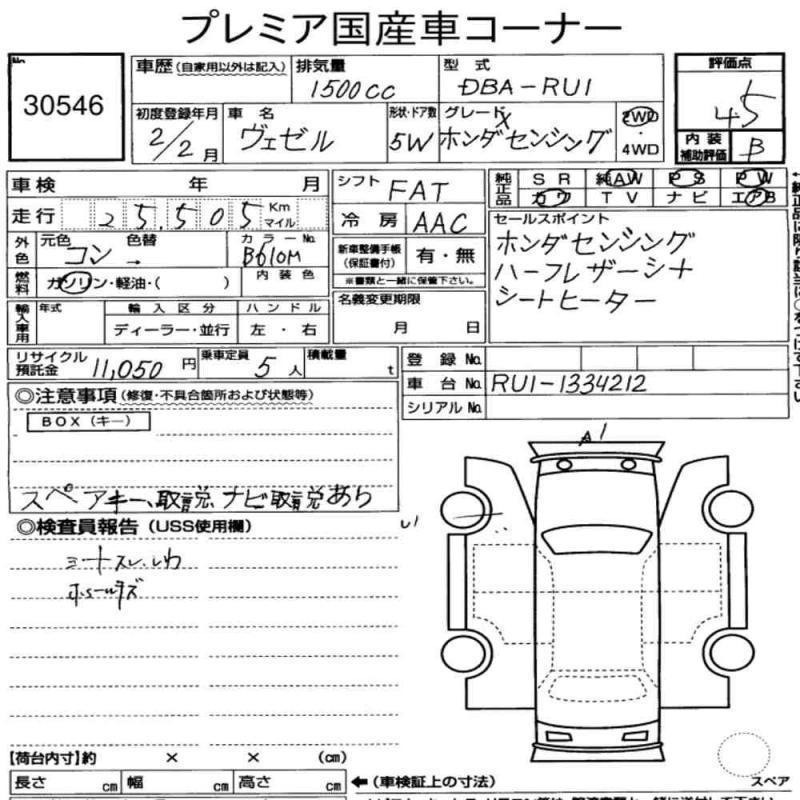 プレミア国産車コーナー
No. 30546
車歴 (自家用以外は記入) 排気量 1500cc 型式 DBA-RU1 評価点 4.5
初度登録年月 2/2月 車名 ヴェゼル 形状・ドア数 5W グレード X ホンダセンシング 2WD ・ 4WD 内装補助評価 B
車検 年 月 シフト FAT 純正品 SR 純AW PS PW
カワ TV ナビ エアB
走行 25,505 Km マイル 冷房 AAC
外色 元色 コン 色替 → カラーNo. B610M
燃料 ガソリン・軽油・( ) 内装色
新車整備手帳 (保証書付) 有・無
※書類と一緒に保管下さい。
名義変更期限
月 日
セールスポイント
ホンダセンシング
ハーフレザーシート
シートヒーター
輸入車用 年式 輸入区分 ハンドル
ディーラー・並行 左・右
リサイクル預託金 11,050 円 乗車定員 5 人 積載量 t
登録No.
車台No. RU1-1334212
シリアルNo.
◎注意事項 (修復・不具合箇所および状態等)
BOX(キー)
スペアキー、取説、ナビ取説あり
◎検査員報告 (USS使用欄)
シートスレ、シワ
A1
U1
【荷台内寸】約 × × (cm)
長さ cm 幅 cm 高さ cm
←(車検証上の寸法)
スペア